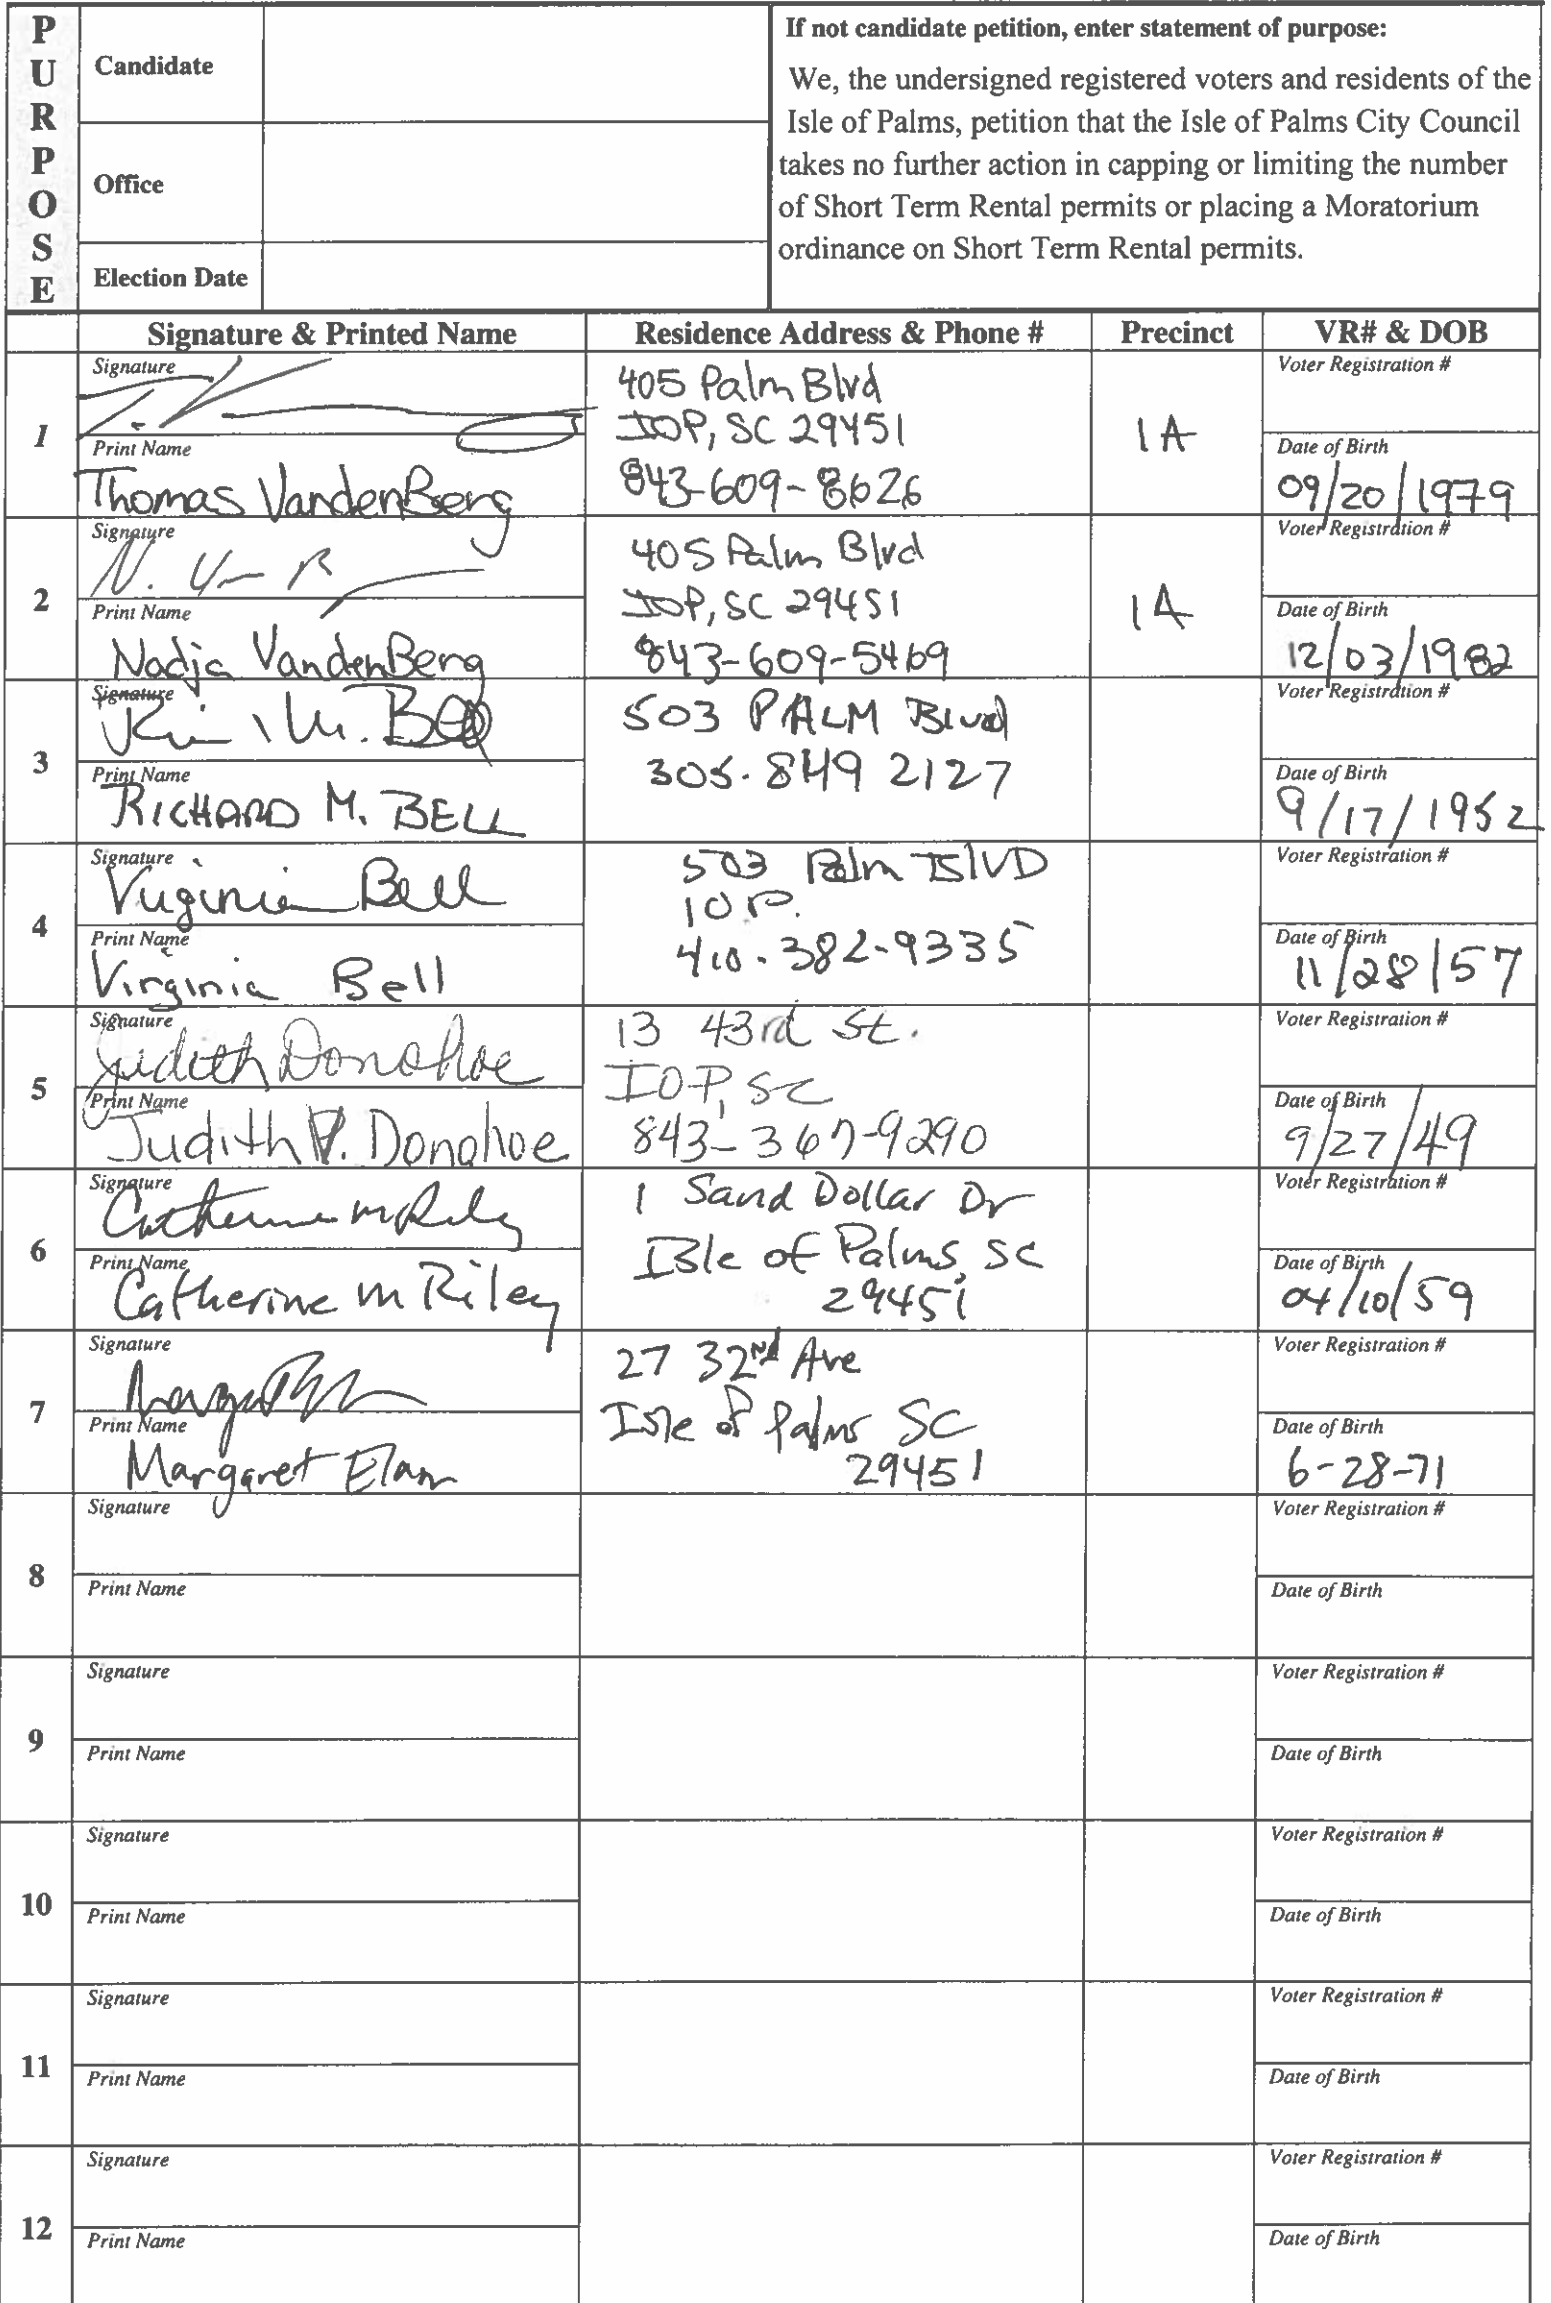 PURPOSE
Candidate
Office
Election Date
If not candidate petition, enter statement of purpose:
We, the undersigned registered voters and residents of the
Isle of Palms, petition that the Isle of Palms City Council
takes no further action in capping or limiting the number
of Short Term Rental permits or placing a Moratorium
ordinance on Short Term Rental permits.
Signature & Printed Name Residence Address & Phone # Precinct VR# & DOB
1
Signature
Print Name
Thomas VandenBerg
405 Palm Blvd
IOP, SC 29451
843-609-8626
1A
Voter Registration #
Date of Birth
09/20/1979
2
Signature
N.
Print Name
Nadja VandenBerg
405 Palm Blvd
IOP, SC 29451
843-609-5469
1A
Voter Registration #
Date of Birth
12/03/1982
3
Signature
Print Name
RICHARD M. BELL
503 PALM Blvd
305.849 2127
Voter Registration #
Date of Birth
9/17/1952
4
Signature
Virginia Bell
Print Name
Virginia Bell
503 Palm BlVD
IOP.
410.382-9335
Voter Registration #
Date of Birth
11/28/57
5
Signature
Judith Donohoe
Print Name
Judith P. Donohoe
13 43rd St.
IOP, SC
843-367-9290
Voter Registration #
Date of Birth
9/27/49
6
Signature
Catherine m Riley
Print Name
Catherine m Riley
1 Sand Dollar Dr
Isle of Palms, SC
29451
Voter Registration #
Date of Birth
04/10/59
7
Signature
Print Name
Margaret Elam
27 32nd Ave
Isle of Palms SC
29451
Voter Registration #
Date of Birth
6-28-71
8
Signature
Print Name
Voter Registration #
Date of Birth
9
Signature
Print Name
Voter Registration #
Date of Birth
10
Signature
Print Name
Voter Registration #
Date of Birth
11
Signature
Print Name
Voter Registration #
Date of Birth
12
Signature
Print Name
Voter Registration #
Date of Birth